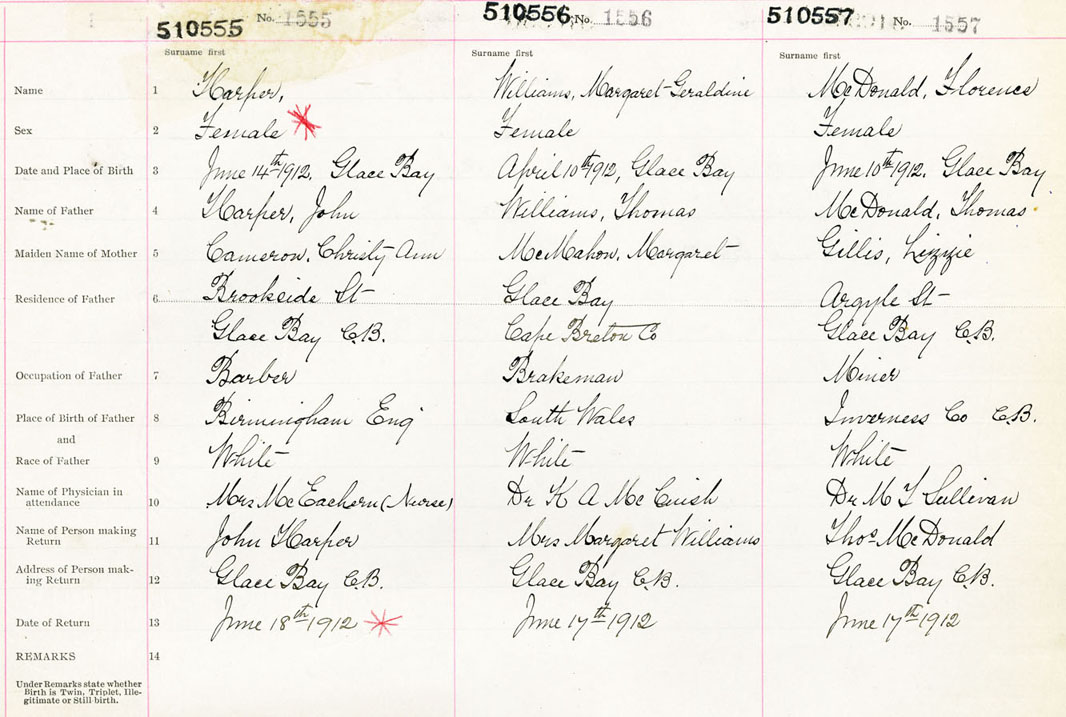 510555 No. 1555 510556 No. 1556 510557 No. 1557
Surname first Surname first Surname first
Name 1 Harper, Williams, Margaret Geraldine McDonald, Florence
Sex 2 Female Female Female
Date and Place of Birth 3 June 14th 1912, Glace Bay April 10th 1912, Glace Bay June 10th 1912, Glace Bay
Name of Father 4 Harper, John Williams, Thomas McDonald, Thomas
Maiden Name of Mother 5 Cameron, Christy Ann McMahon, Margaret Gillis, Lizzie
Residence of Father 6 Brookside St Glace Bay Argyle St
Glace Bay C.B. Cape Breton Co Glace Bay C.B.
Occupation of Father 7 Barber Brakeman Miner
Place of Birth of Father 8 Birmingham Eng South Wales Inverness Co C.B.
and
Race of Father 9 White White White
Name of Physician in
attendance 10 Mrs McEachern (Nurse) Dr K A McCuish Dr M T Sullivan
Name of Person making
Return 11 John Harper Mrs Margaret Williams Thos McDonald
Address of Person mak-
ing Return 12 Glace Bay C.B. Glace Bay C.B. Glace Bay C.B.
Date of Return 13 June 18th 1912 June 17th 1912 June 17th 1912
REMARKS 14
Under Remarks state whether
Birth is Twin, Triplet, Ille-
gitimate or Still birth.